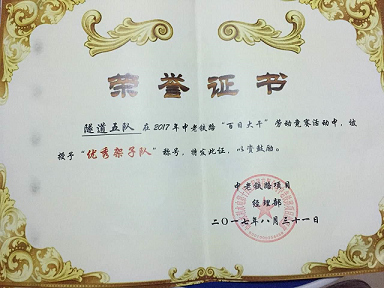 荣誉证书
隧道五队 在2017年中老铁路“百日大干”劳动竞赛活动中，被
授予“优秀架子队”称号，特发此证，以资鼓励。
中老铁路项目
经理部
二〇一七年八月三十一日